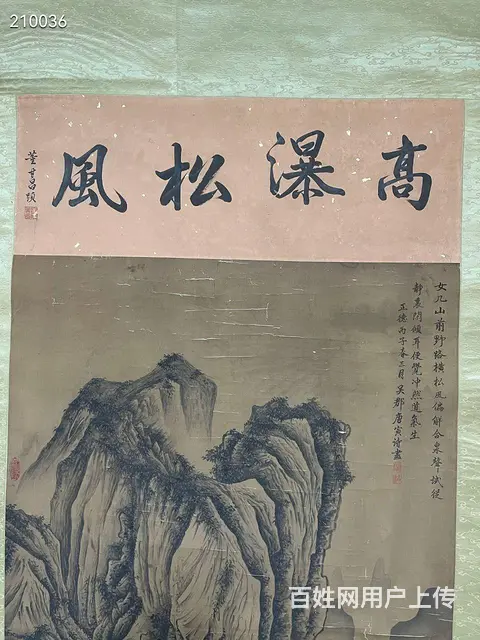 210036
高瀑松風
董其昌題
女几山前野路橫松風偏解合泉聲試從
靜裏閒傾耳便覺沖然道氣生
正德丙子春三月吳郡唐寅詩畫
百姓网用户上传